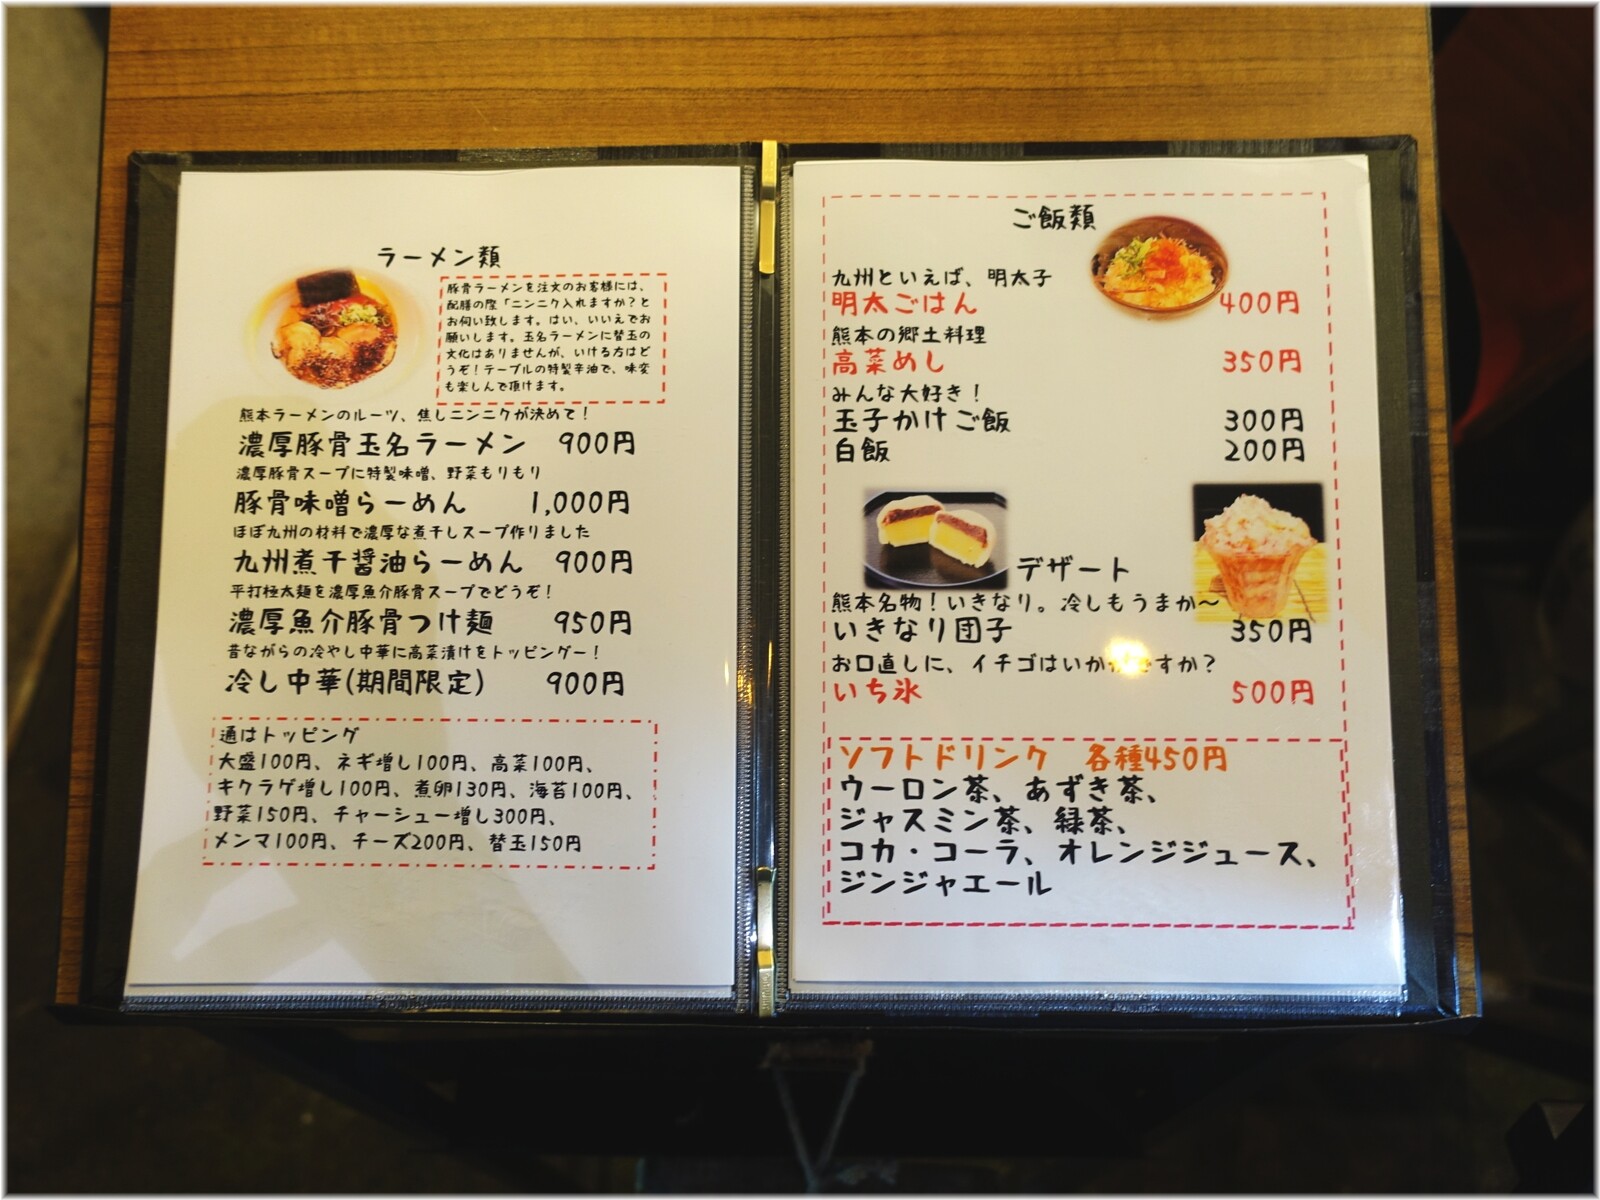 ラーメン類
豚骨ラーメンを注文のお客様には、
配膳の際「ニンニク入れますか？と
お伺い致します。はい、いいえでお
願いします。玉名ラーメンに替玉の
文化はありませんが、いける方はど
うぞ！テーブルの特製辛油で、味変
も楽しんで頂けます。
熊本ラーメンのルーツ、焦しニンニクが決めて！
濃厚豚骨玉名ラーメン 900円
濃厚豚骨スープに特製味噌、野菜もりもり
豚骨味噌らーめん 1,000円
ほぼ九州の材料で濃厚な煮干しスープ作りました
九州煮干醤油らーめん 900円
平打極太麺を濃厚魚介豚骨スープでどうぞ！
濃厚魚介豚骨つけ麺 950円
昔ながらの冷やし中華に高菜漬けをトッピングー！
冷し中華(期間限定) 900円
通はトッピング
大盛100円、ネギ増し100円、高菜100円、
キクラゲ増し100円、煮卵130円、海苔100円、
野菜150円、チャーシュー増し300円、
メンマ100円、チーズ200円、替玉150円
ご飯類
九州といえば、明太子
明太ごはん 400円
熊本の郷土料理
高菜めし 350円
みんな大好き！
玉子かけご飯 300円
白飯 200円
デザート
熊本名物！いきなり。冷しもうまか〜
いきなり団子 350円
お口直しに、イチゴはいかがですか？
いち氷 500円
ソフトドリンク 各種450円
ウーロン茶、あずき茶、
ジャスミン茶、緑茶、
コカ・コーラ、オレンジジュース、
ジンジャエール